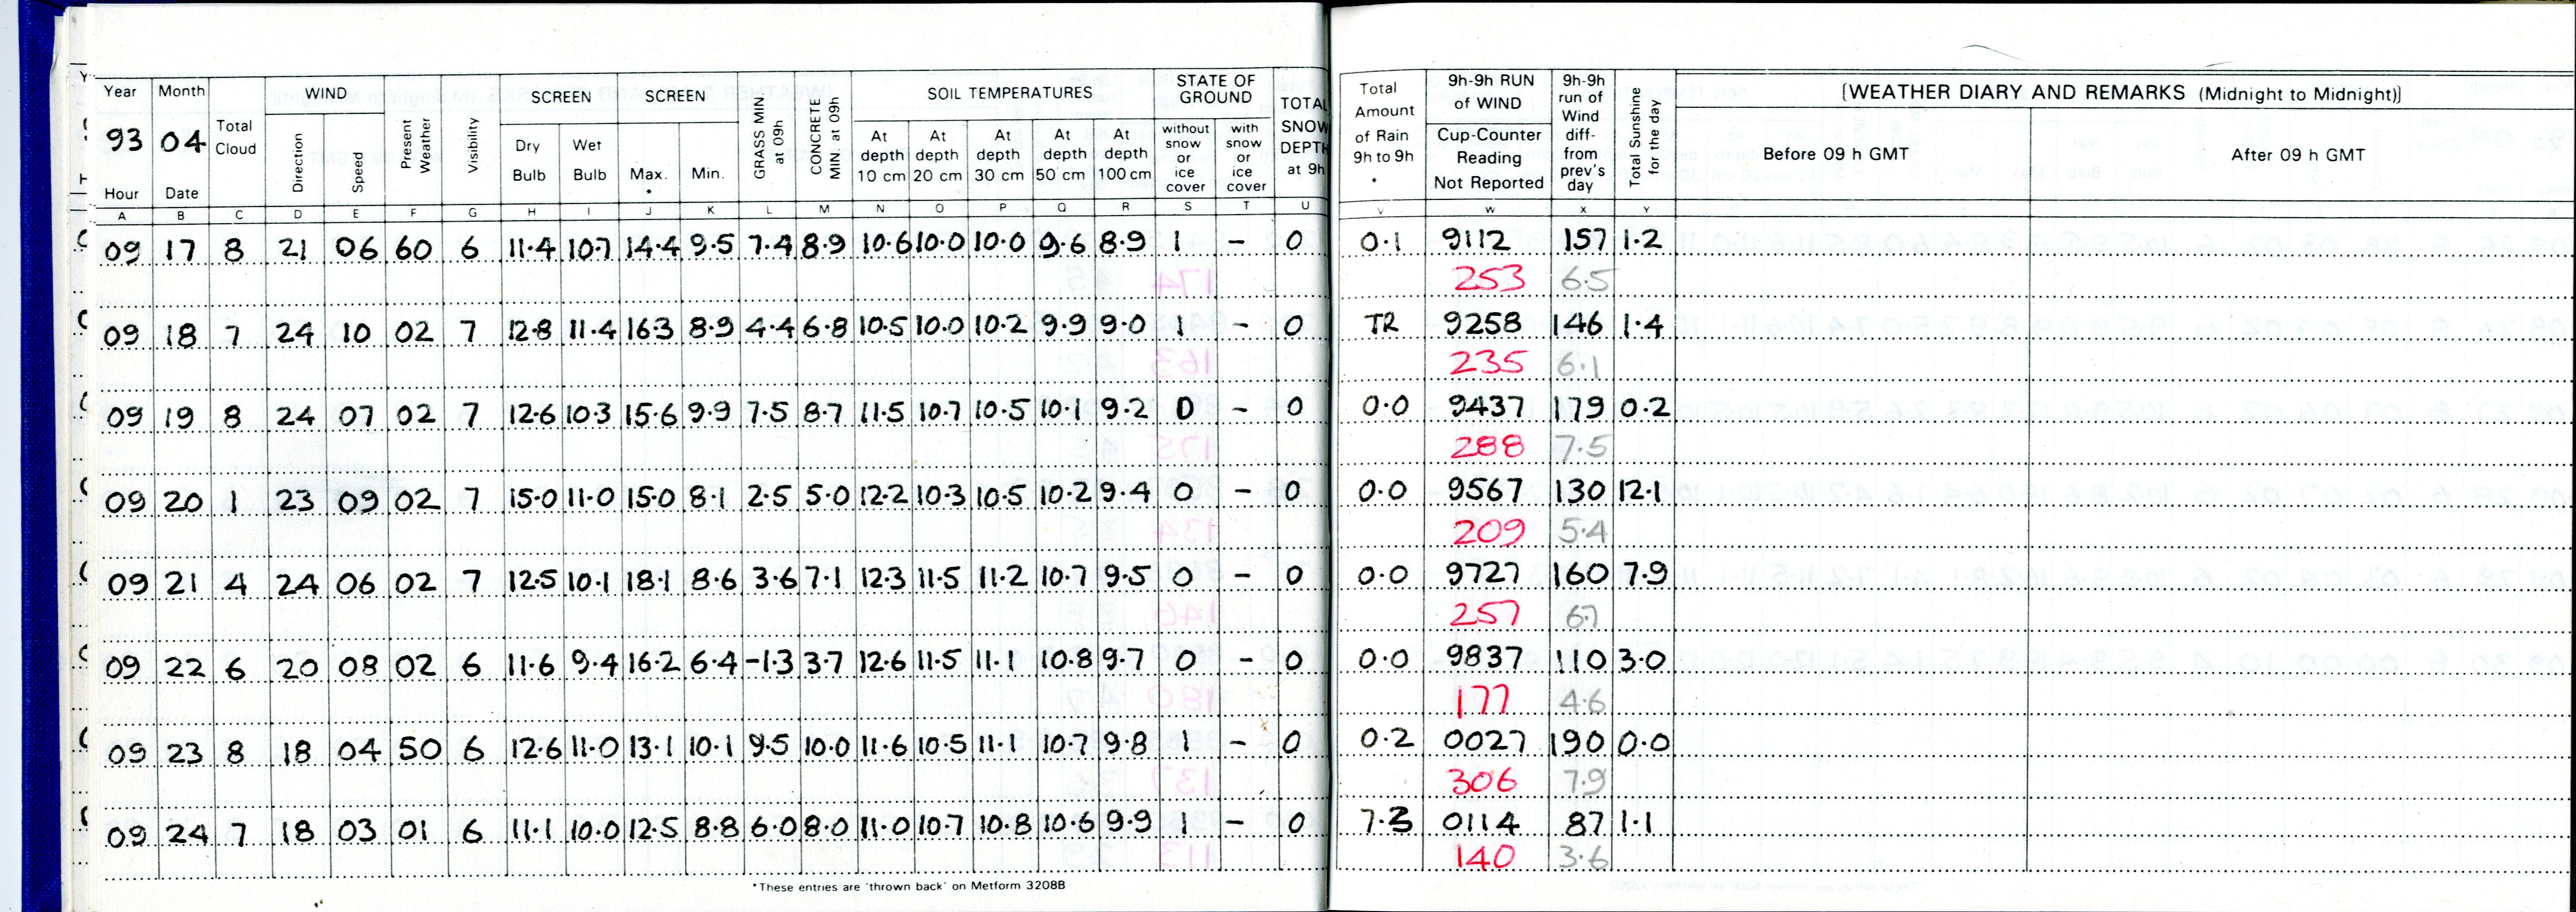 Year Month WIND SCREEN SCREEN GRASS MIN. at 09h CONCRETE MIN. at 09h SOIL TEMPERATURES STATE OF GROUND TOTAL SNOW DEPTH at 9h Total Amount of Rain 9h to 9h * 9h-9h RUN of WIND 9h-9h run of Wind diff- from prev's day Total Sunshine for the day [WEATHER DIARY AND REMARKS (Midnight to Midnight)]
93 04 Total Cloud Direction Speed Present Weather Visibility Dry Bulb Wet Bulb Max. * Min. At depth 10 cm At depth 20 cm At depth 30 cm At depth 50 cm At depth 100 cm without snow or ice cover with snow or ice cover Cup-Counter Reading Not Reported Before 09 h GMT After 09 h GMT
Hour Date
A B C D E F G H I J K L M N O P Q R S T U V W X Y
09 17 8 21 06 60 6 11.4 10.7 14.4 9.5 7.4 8.9 10.6 10.0 10.0 9.6 8.9 1 - 0 0.1 9112 157 1.2
253 6.5
09 18 7 24 10 02 7 12.8 11.4 16.3 8.9 4.4 6.8 10.5 10.0 10.2 9.9 9.0 1 - 0 TR 9258 146 1.4
235 6.1
09 19 8 24 07 02 7 12.6 10.3 15.6 9.9 7.5 8.7 11.5 10.7 10.5 10.1 9.2 0 - 0 0.0 9437 179 0.2
288 7.5
09 20 1 23 09 02 7 15.0 11.0 15.0 8.1 2.5 5.0 12.2 10.3 10.5 10.2 9.4 0 - 0 0.0 9567 130 12.1
209 5.4
09 21 4 24 06 02 7 12.5 10.1 18.1 8.6 3.6 7.1 12.3 11.5 11.2 10.7 9.5 0 - 0 0.0 9727 160 7.9
257 6.7
09 22 6 20 08 02 6 11.6 9.4 16.2 6.4 -1.3 3.7 12.6 11.5 11.1 10.8 9.7 0 - 0 0.0 9837 110 3.0
177 4.6
09 23 8 18 04 50 6 12.6 11.0 13.1 10.1 9.5 10.0 11.6 10.5 11.1 10.7 9.8 1 - 0 0.2 0027 190 0.0
306 7.9
09 24 7 18 03 01 6 11.1 10.0 12.5 8.8 6.0 8.0 11.0 10.7 10.8 10.6 9.9 1 - 0 7.3 0114 87 1.1
140 3.6
*These entries are 'thrown back' on Metform 3208B